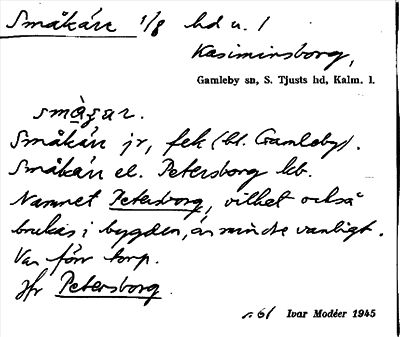 Småkärr 1/8 hd u. 1
Kasimirsborg,
Gamleby sn, S. Tjusts hd, Kalm. l.
småẓar.
Småkärr jr, fek (bl. Gamleby).
Småkärr el. Petersborg kb.
Namnet Petersborg, vilket också
brukas i bygden, är mindre vanligt.
Var förr torp.
Jfr Petersborg.
s. 61 Ivar Modéer 1945